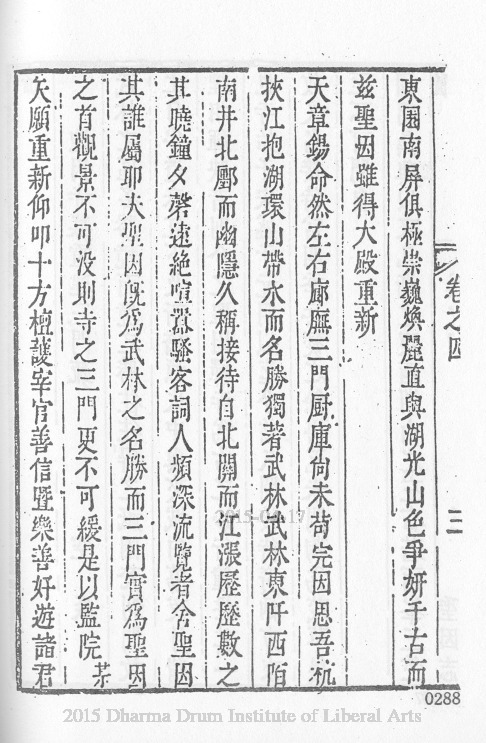 卷之四
三
東園南屏俱極崇巍煥麗直與湖光山色爭妍千古而
兹聖因雖得大殿重新
天章錫命然左右廊廡三門厨庫尙未苟完因思吾杭
挾江抱湖環山帶水而名勝獨著武林武林東阡西陌
南井北郵而幽隱久稱接待自北關而江漲歷歷數之
其曉鐘夕磬遠絶喧囂騷客詞人頻深流覽者舍聖因
其誰屬耶夫聖因旣爲武林之名勝而三門實爲聖因
之首觀景不可没則寺之三門更不可緩是以監院某
矢願重新仰叩十方檀護宰官善信曁樂善好遊諸君
2015-04-17
0288
2015 Dharma Drum Institute of Liberal Arts